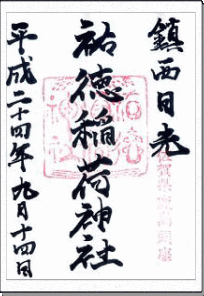 鎮西日光
祐徳稲荷神社
平成二十四年九月十四日